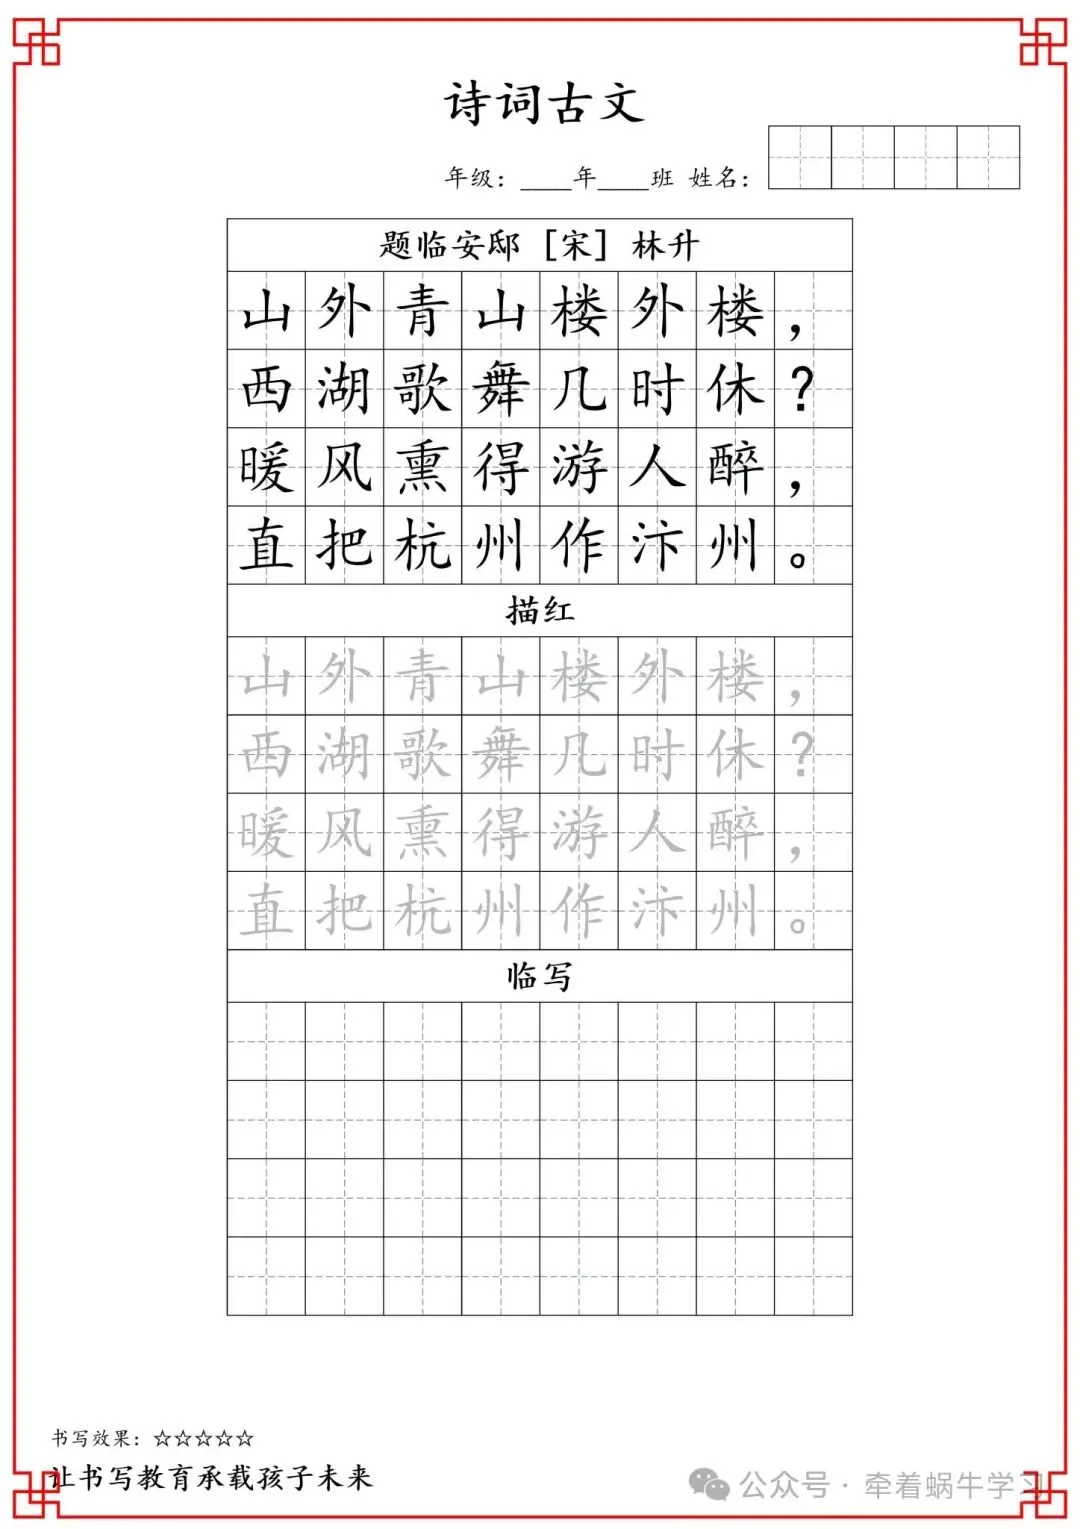 诗词古文
年级：____年____班 姓名：
题临安邸 [宋] 林升
山外青山楼外楼，
西湖歌舞几时休？
暖风熏得游人醉，
直把杭州作汴州。
描红
山外青山楼外楼，
西湖歌舞几时休？
暖风熏得游人醉，
直把杭州作汴州。
临写
书写效果：☆☆☆☆☆
让书写教育承载孩子未来
公众号 · 牵着蜗牛学习